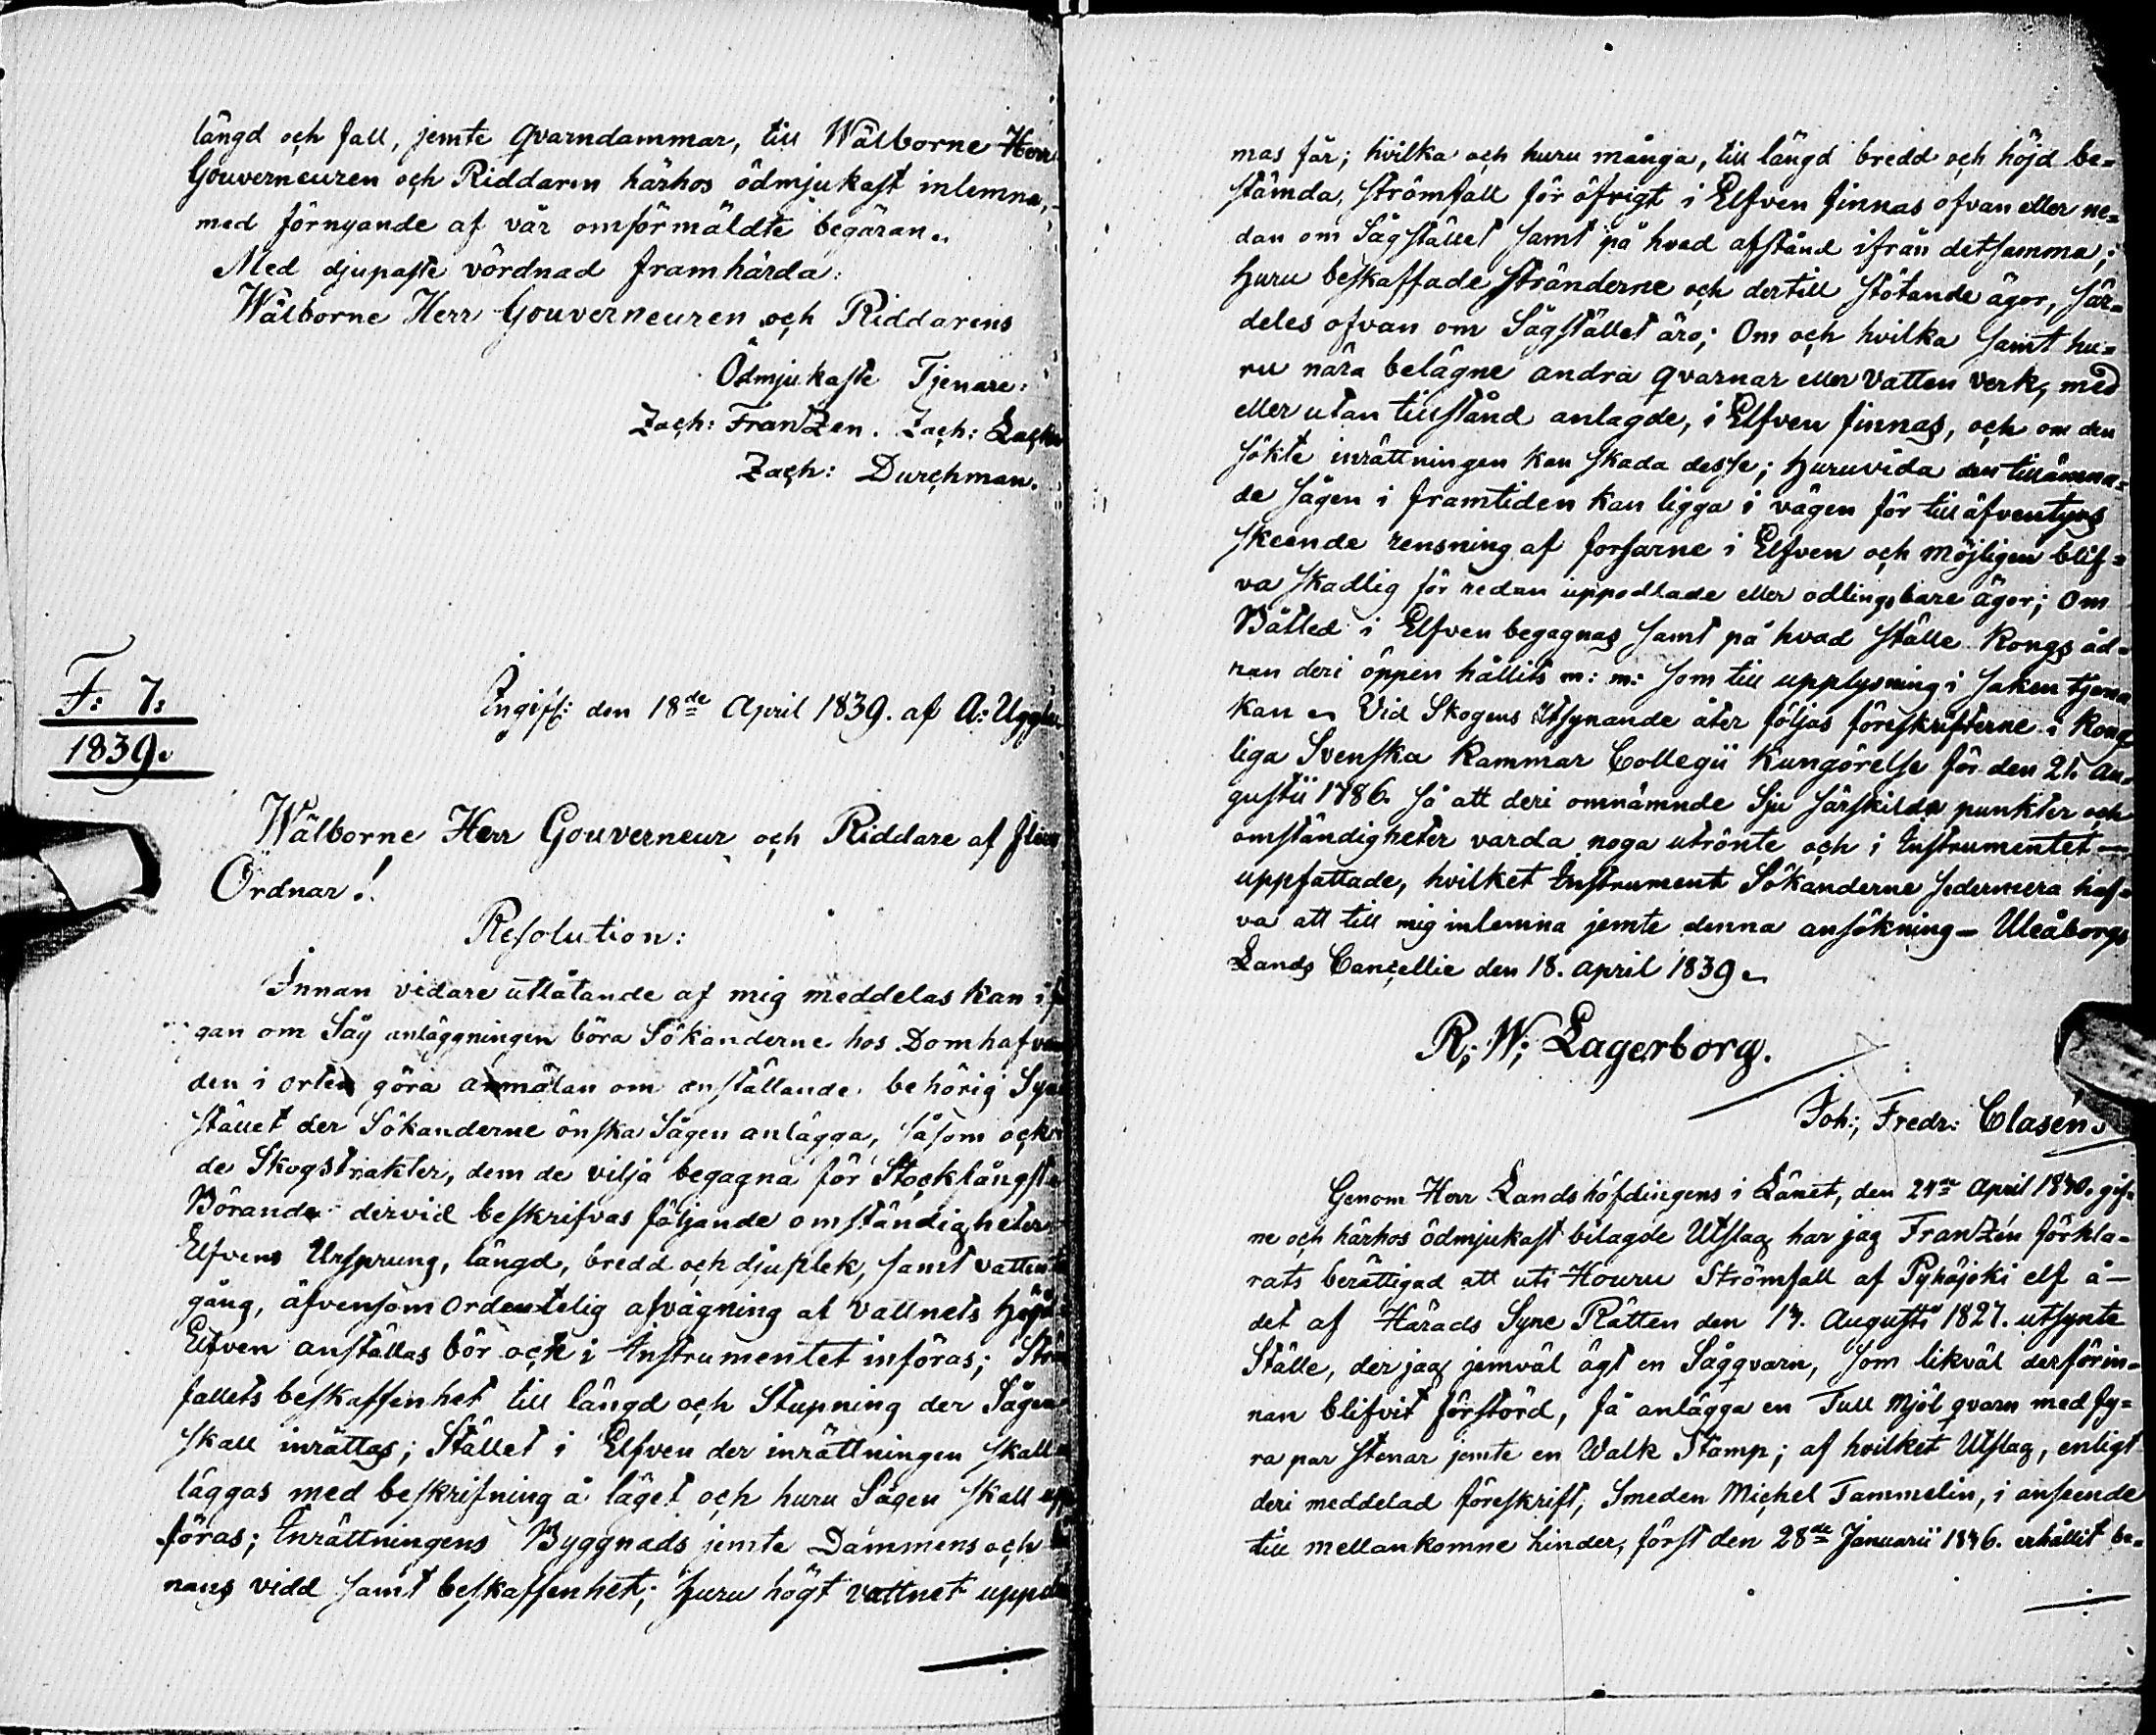 längd och fall, jemte qvarndammar, till Wälborne Herr
Gouverneuren och Riddaren härhos ödmjukast inlemna,
med förnyande af vår omförmäldte begäran.
Med djupaste vördnad framhärda:
Wälborne Herr Gouverneuren och Riddarens
Ödmjukaste Tjenare:
Zach: FranZen. Zach:
Zach: Durchman.
F: 7:
1839.
Ingifs: den 18de April 1839. af A: Uggla
Wälborne Herr Gouverneur och Riddare af flera
Ordnar!
Resolution:
Innan vidare utlåtande af mig meddelas kan i
gan om Såg anläggningen böra Sökanderne hos Domhafvan
den i orten göra anmälan om anställande behörig Syn
stället der Sökanderne önska Sågen anlägga, såsom ock
de Skogstrakter, dem de vilja begagna för Stockfångst
Börande dervid beskrifvas följande omständigheter
Elfvens Ursprung, längd, bredd och djuplek, samt vatten
gång, äfvensom ordentelig afvägning af vattnets höjd
Elfven anställas bör och i Instrumentet införas; Ström
fallets beskaffenhet till längd och Stupning der Sågen
skall inrättas; Stället i Elfven der inrättningen skall
läggas med beskrifning å läget och huru Sågen skall upp
föras; Inrättningens Byggnads jemte Dammens och
nans vidd samt beskaffenhet; huru högt vattnet uppdäm
mas får; hvilka och huru många, till längd bredd och höjd be=
stämda, strömfall för öfrigt i Elfven finnas ofvan eller ne=
dan om Sågstället samt på hvad afstånd ifrån detsamma;
huru beskaffade stränderne och dertill stötande ägor, sär=
deles ofvan om Sågstället äro; Om och hvilka samt hu=
ru nära belägne andra qvarnar eller Vatten verk, med
eller utan tillstånd anlagde, i Elfven finnas, och om den
sökte inrättningen kan skada desse; huruvida den tillämna=
de Sågen i framtiden kan ligga i vägen för till äfventyrs
skeende rensning af forsarne i Elfven och möjligen blif=
va skadlig för redan uppodlade eller odlingsbare ägor; Om
Båtled i Elfven begagnas samt på hvad ställe Kongs åd=
ran deri öppen hållits m: m: som till upplysning i saken tjena
kan. Vid Skogens Utsynande åter följas föreskrifterne i Kong
liga Svenska Kammar Collegii Kungörelse för den 21. Au=
gustii 1786. så att deri omnämnde Sju särskilda punkter och
omständigheter varda noga utrönte och i Instrumentet
uppfattade, hvilket Instrument Sökanderne sedermera haf=
va att till mig inlemna jemte denna ansökning - Uleåborgs
Lands Cancellie den 18. April 1839.
R; W; Lagerborg.
Joh:; Fredr: Clasén.
Genom Herr Landshöfdingens i Länet, den 24de April 1840. gif=
ne och härhos ödmjukast bilagde Utslag har jag FranZén förkla=
rats berättigad att uti Houru Strömfall af Pyhäjoki elf å-
det af Härads Syne Rätten den 17. Augusti 1827. utsynte
Ställe, der jag jemväl ägt en Sågqvarn, som likväl derförin=
nan blifvit förstörd, få anlägga en Tull Mjöl qvarn med fy=
ra par stenar jemte en Walk Stamp; af hvilket Utslag, enligt
deri meddelad föreskrift, Smeden Michel Tammelin, i anseende
till mellankomne hinder, först den 28de Januarii 1846. erhållit be=